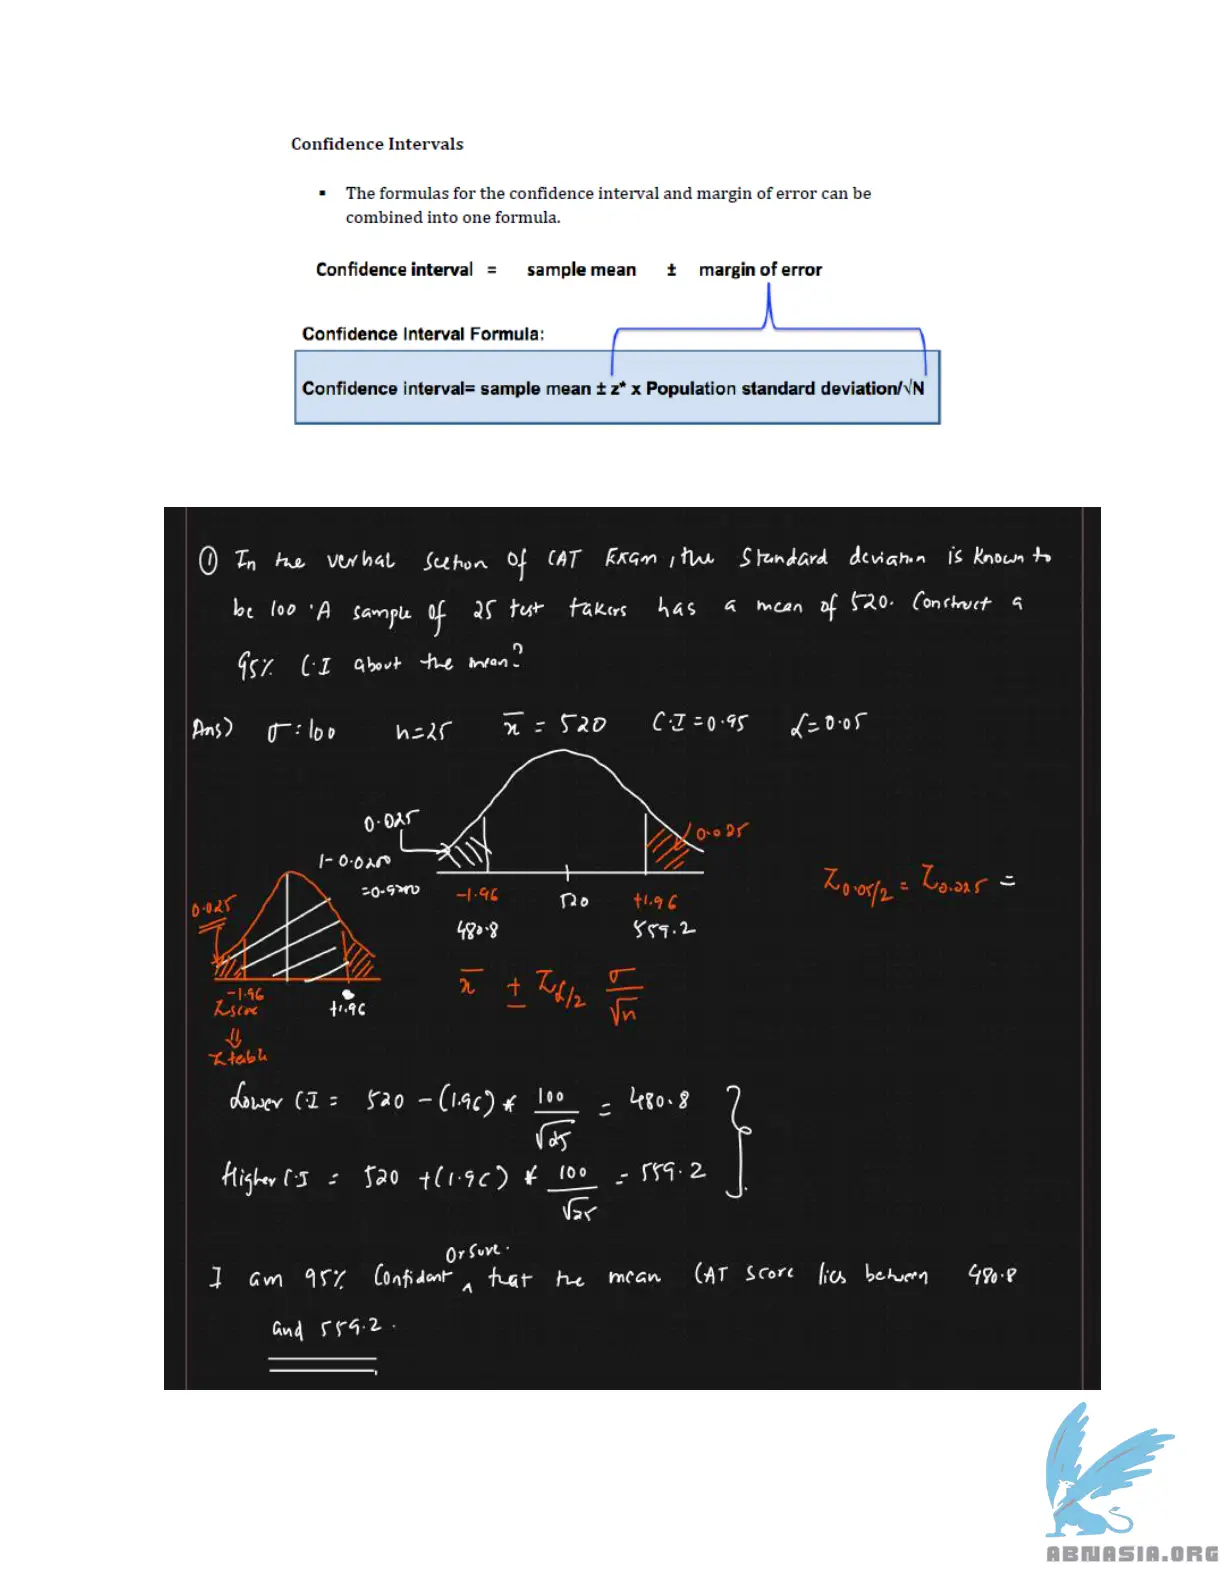 Confidence Intervals
▪ The formulas for the confidence interval and margin of error can be
combined into one formula.
Confidence interval = sample mean ± margin of error
Confidence Interval Formula:
Confidence interval= sample mean ± z* x Population standard deviation/√N
① In the verbal section of CAT Exam, the Standard deviation is known to
be 100. A sample of 25 test takers has a mean of 520. Construct a
95% C.I about the mean?
Ans) σ = 100 n=25 x̄ = 520 C.I = 0.95 α = 0.05
0.025
0.025
1 - 0.0250
= 0.9750
0.025
-1.96 520 +1.96
480.8 559.2
Z0.05/2 = Z0.025 =
x̄ ± Zα/2 σ/√n
-1.96
Zscore +1.96
⇓
Z table
Lower C.I = 520 - (1.96) * 100/√25 = 480.8
Higher C.I = 520 + (1.96) * 100/√25 = 559.2
Or Sure.
I am 95% Confidant ^ that the mean CAT score lies between 480.8
and 559.2.
ABNASIA.ORG